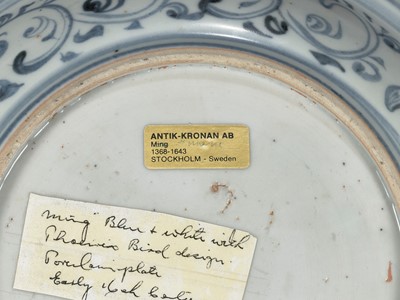 ANTIK-KRONAN AB
Ming
1368-1643
STOCKHOLM - Sweden
"Ming" Blue & white with
Phoenix Bird design
Porcelain plate
Early 16th